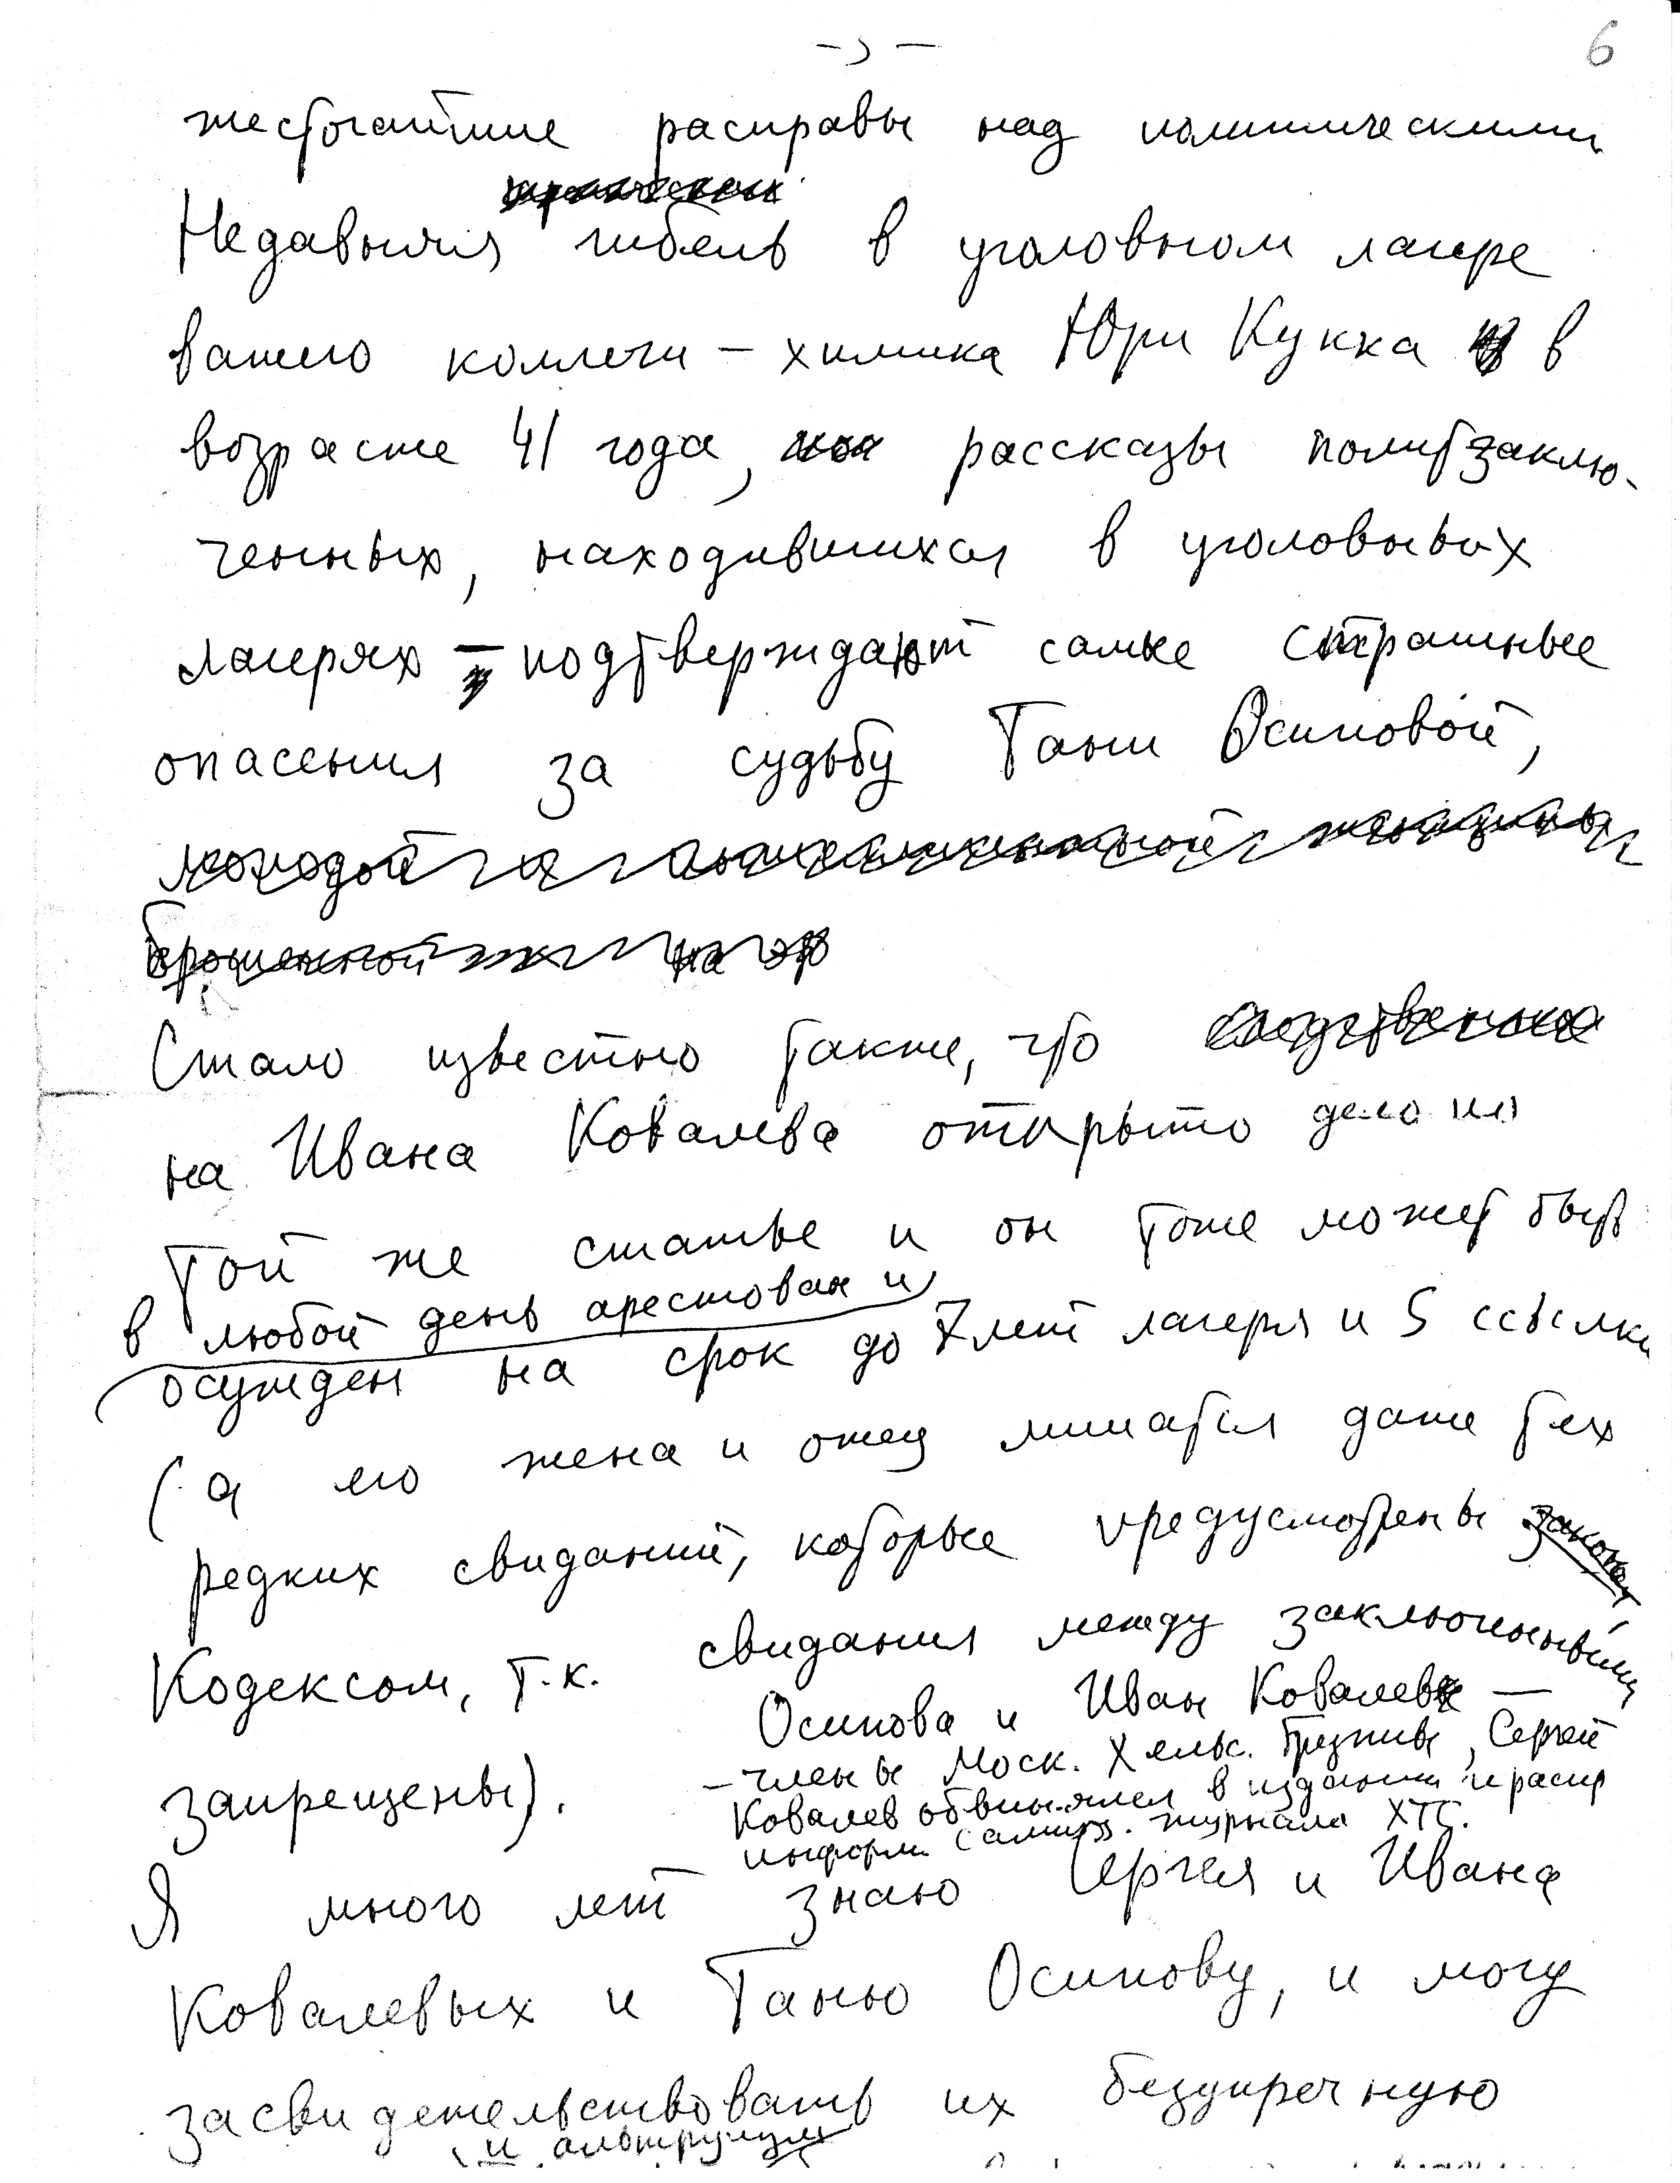 6
жесточайшие расправы над политическими
Недавняя гибель в уголовном лагере
вашего коллеги – химика Юри Кукка в
возрасте 41 года, рассказы политзаклю-
ченных, находившихся в уголовных
лагерях – подтверждают самые страшные
опасения за судьбу Тани Осиповой,
молодой женщины
брошенной на
Стало известно также, что следственно
на Ивана Ковалева открыто дело по
той же статье и он тоже может быть
в любой день арестован и
осужден на срок до 7 лет лагеря и 5 ссылки
(а его жена и отец лишатся даже тех
редких свиданий, которые предусмотрены законом,
Кодексом, т.к. свидания между заключенными
запрещены).
Осипова и Иван Ковалев –
– члены Моск. Хельс. Группы, Сергей
Ковалев обвинялся в издании и распр
информ. самизд. журнала ХТС.
Я много лет знаю Сергея и Ивана
Ковалевых и Таню Осипову, и могу
засвидетельствовать их безупречную
и альтруизм